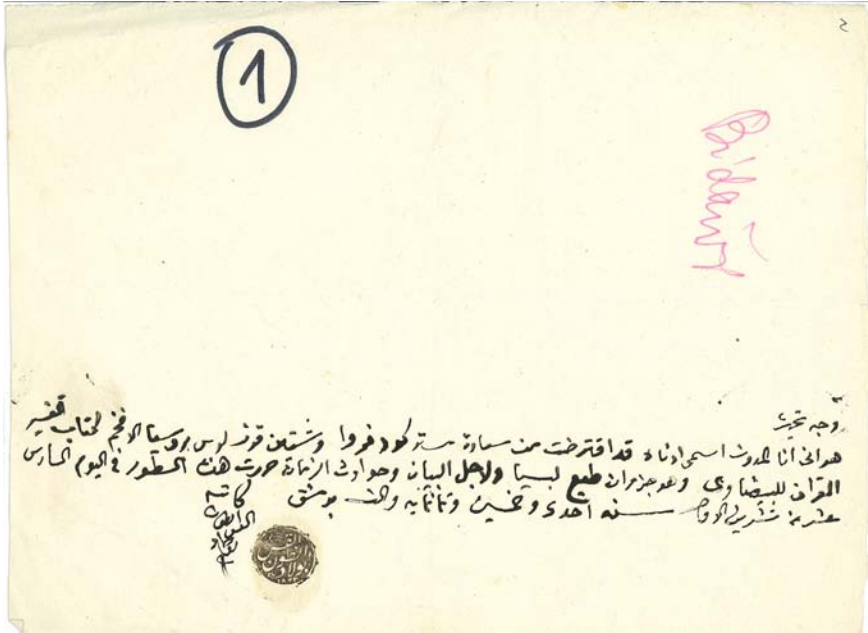 1
Bidawy
وجه تحريره
هو اني انا المدون اسمي ادناه قد اقترضت من سعادة مستر كودفروا وشتاين قونز لوس بروسيا الافخم لكتاب تفسير
القران للبيضاوي وهو جزءان طبع لبسيا ولاجل البيان وحوادث الزمان حررت هذه السطور في اليوم السادس
عشر من تشرين الاول سنة احدى وخمسين وثمانمايه والف بدمشق
كاتبه